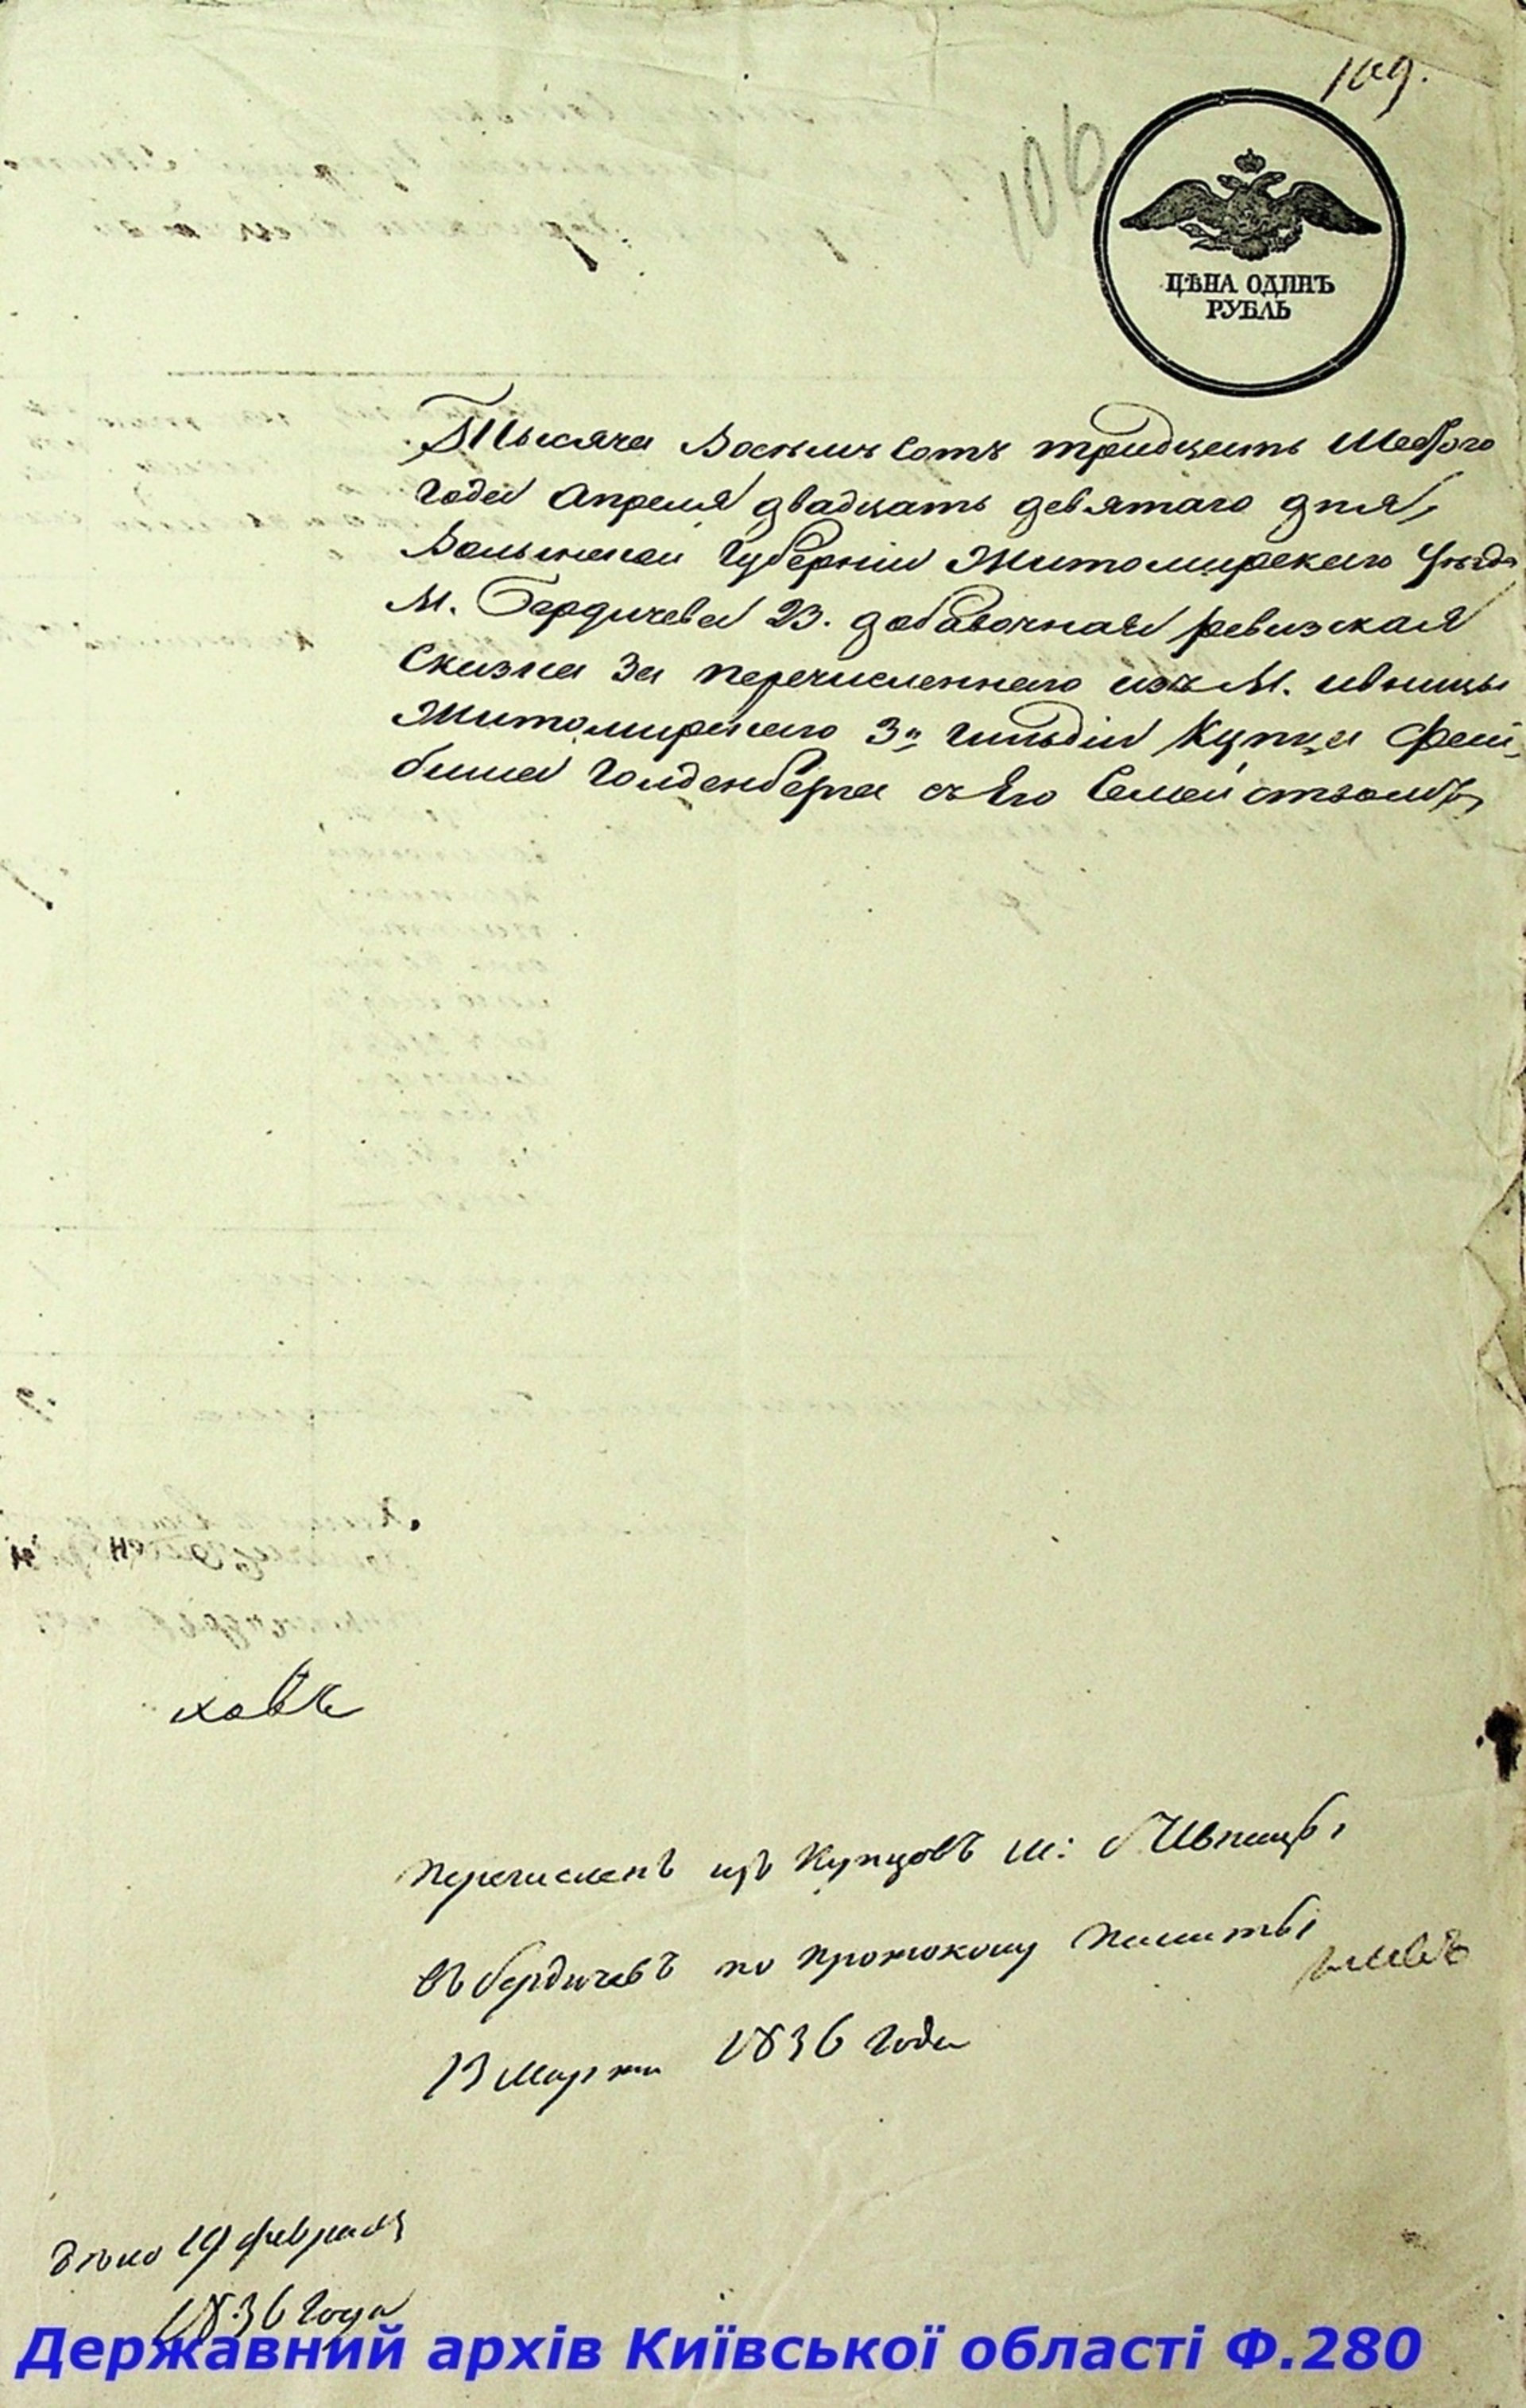 109.
106
ЦѢНА ОДИНЪ
РУБЛЬ
Тысяча Восемь Сотъ тридцать Шестого
Года Апреля двадцать девятаго дня,
Волынской Губерніи Житомирскаго Уѣзда
М. Бердичева 23. добавочная ревизская
Сказка За перечисленнаго изъ М. ивницы
Житомирскаго 3й гильдіи Купца Фай-
биша Голденберга съ Его Семействомъ,
Перечисленъ изъ Купцовъ м: Ивницы
въ Бердичевъ по протоколу Палаты
13 Марта 1836 Года
дѣло 19 февраля
1836 Года
Державний архів Київської області Ф.280